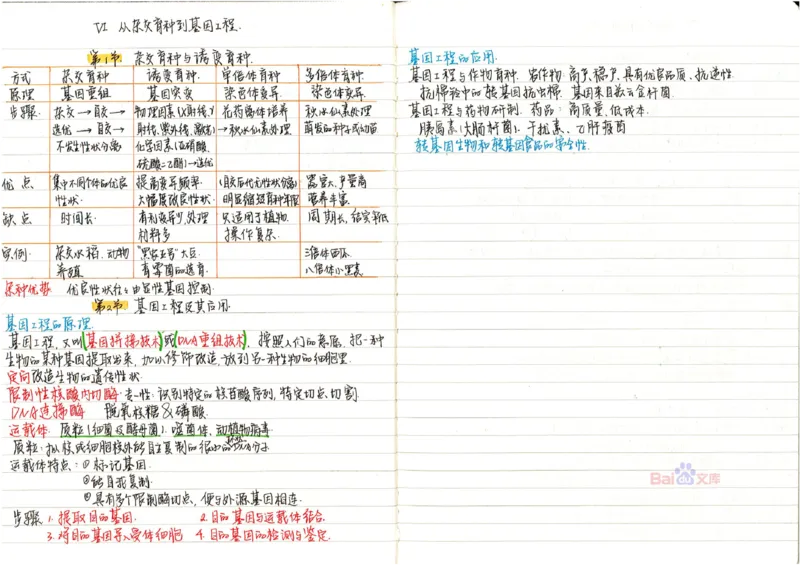 VI 从杂交育种到基因工程.
第1节 杂交育种与诱变育种.
方式 杂交育种 诱变育种. 单倍体育种 多倍体育种.
原理 基因重组 基因突变 染色体变异. 染色体变异.
步骤. 杂交→自交→ 物理因素(X射线, γ 花药离体培养 秋水仙素处理
选优→自交→ 射线, 紫外线, 激光) →秋水仙素处理 萌发的种子或幼苗
不发生性状分离 化学因素(亚硝酸,
硫酸二乙酯)→选优
优点 集中不同个体的优良 提高变异频率. (自交后代无性状分离) 器官大, 产量高
性状. 大幅度改良性状. 明显缩短育种年限 营养丰富.
缺点 时间长. 有利变异少, 处理 只适用于植物. 周期长, 结实率低
材料多 操作复杂.
实例. 杂交水稻. 动物 "黑农五号"大豆. 三倍体西瓜.
养殖 青霉菌的选育. 八倍体小黑麦
杂种优势 优良性状往往由显性基因控制.
第2节 基因工程及其应用.
基因工程的原理.
基因工程, 又叫(基因拼接技术)或(DNA重组技术), 按照人们的意愿, 把一种
生物的某种基因提取出来, 加以修饰改造, 放到另一种生物的细胞里.
定向改造生物的遗传性状.
限制性核酸内切酶: 专一性. 识别特定的核苷酸序列, 特定切点切割.
DNA连接酶 脱氧核糖&磷酸.
运载体 质粒(细菌及酵母菌). 噬菌体, 动植物病毒
质粒: 拟核或细胞核外能自主复制的很小的环状分子
运载体特点: ① 标记基因.
②能自我复制.
③ 具有多个限制酶切点, 便与外源基因相连.
步骤 1. 提取目的基因. 2. 目的基因与运载体结合.
3. 将目的基因导入受体细胞 4. 目的基因的检测与鉴定.
基因工程的应用.
基因工程与作物育种. 农作物: 高产, 稳产, 具有优良品质、抗逆性
抗棉铃虫的转基因抗虫棉. 基因来自苏云金杆菌.
基因工程与药物研制. 药品: 高质量, 低成本.
胰岛素(大肠杆菌). 干扰素、乙肝疫苗
转基因生物和转基因食品的安全性.
Bai du 文库